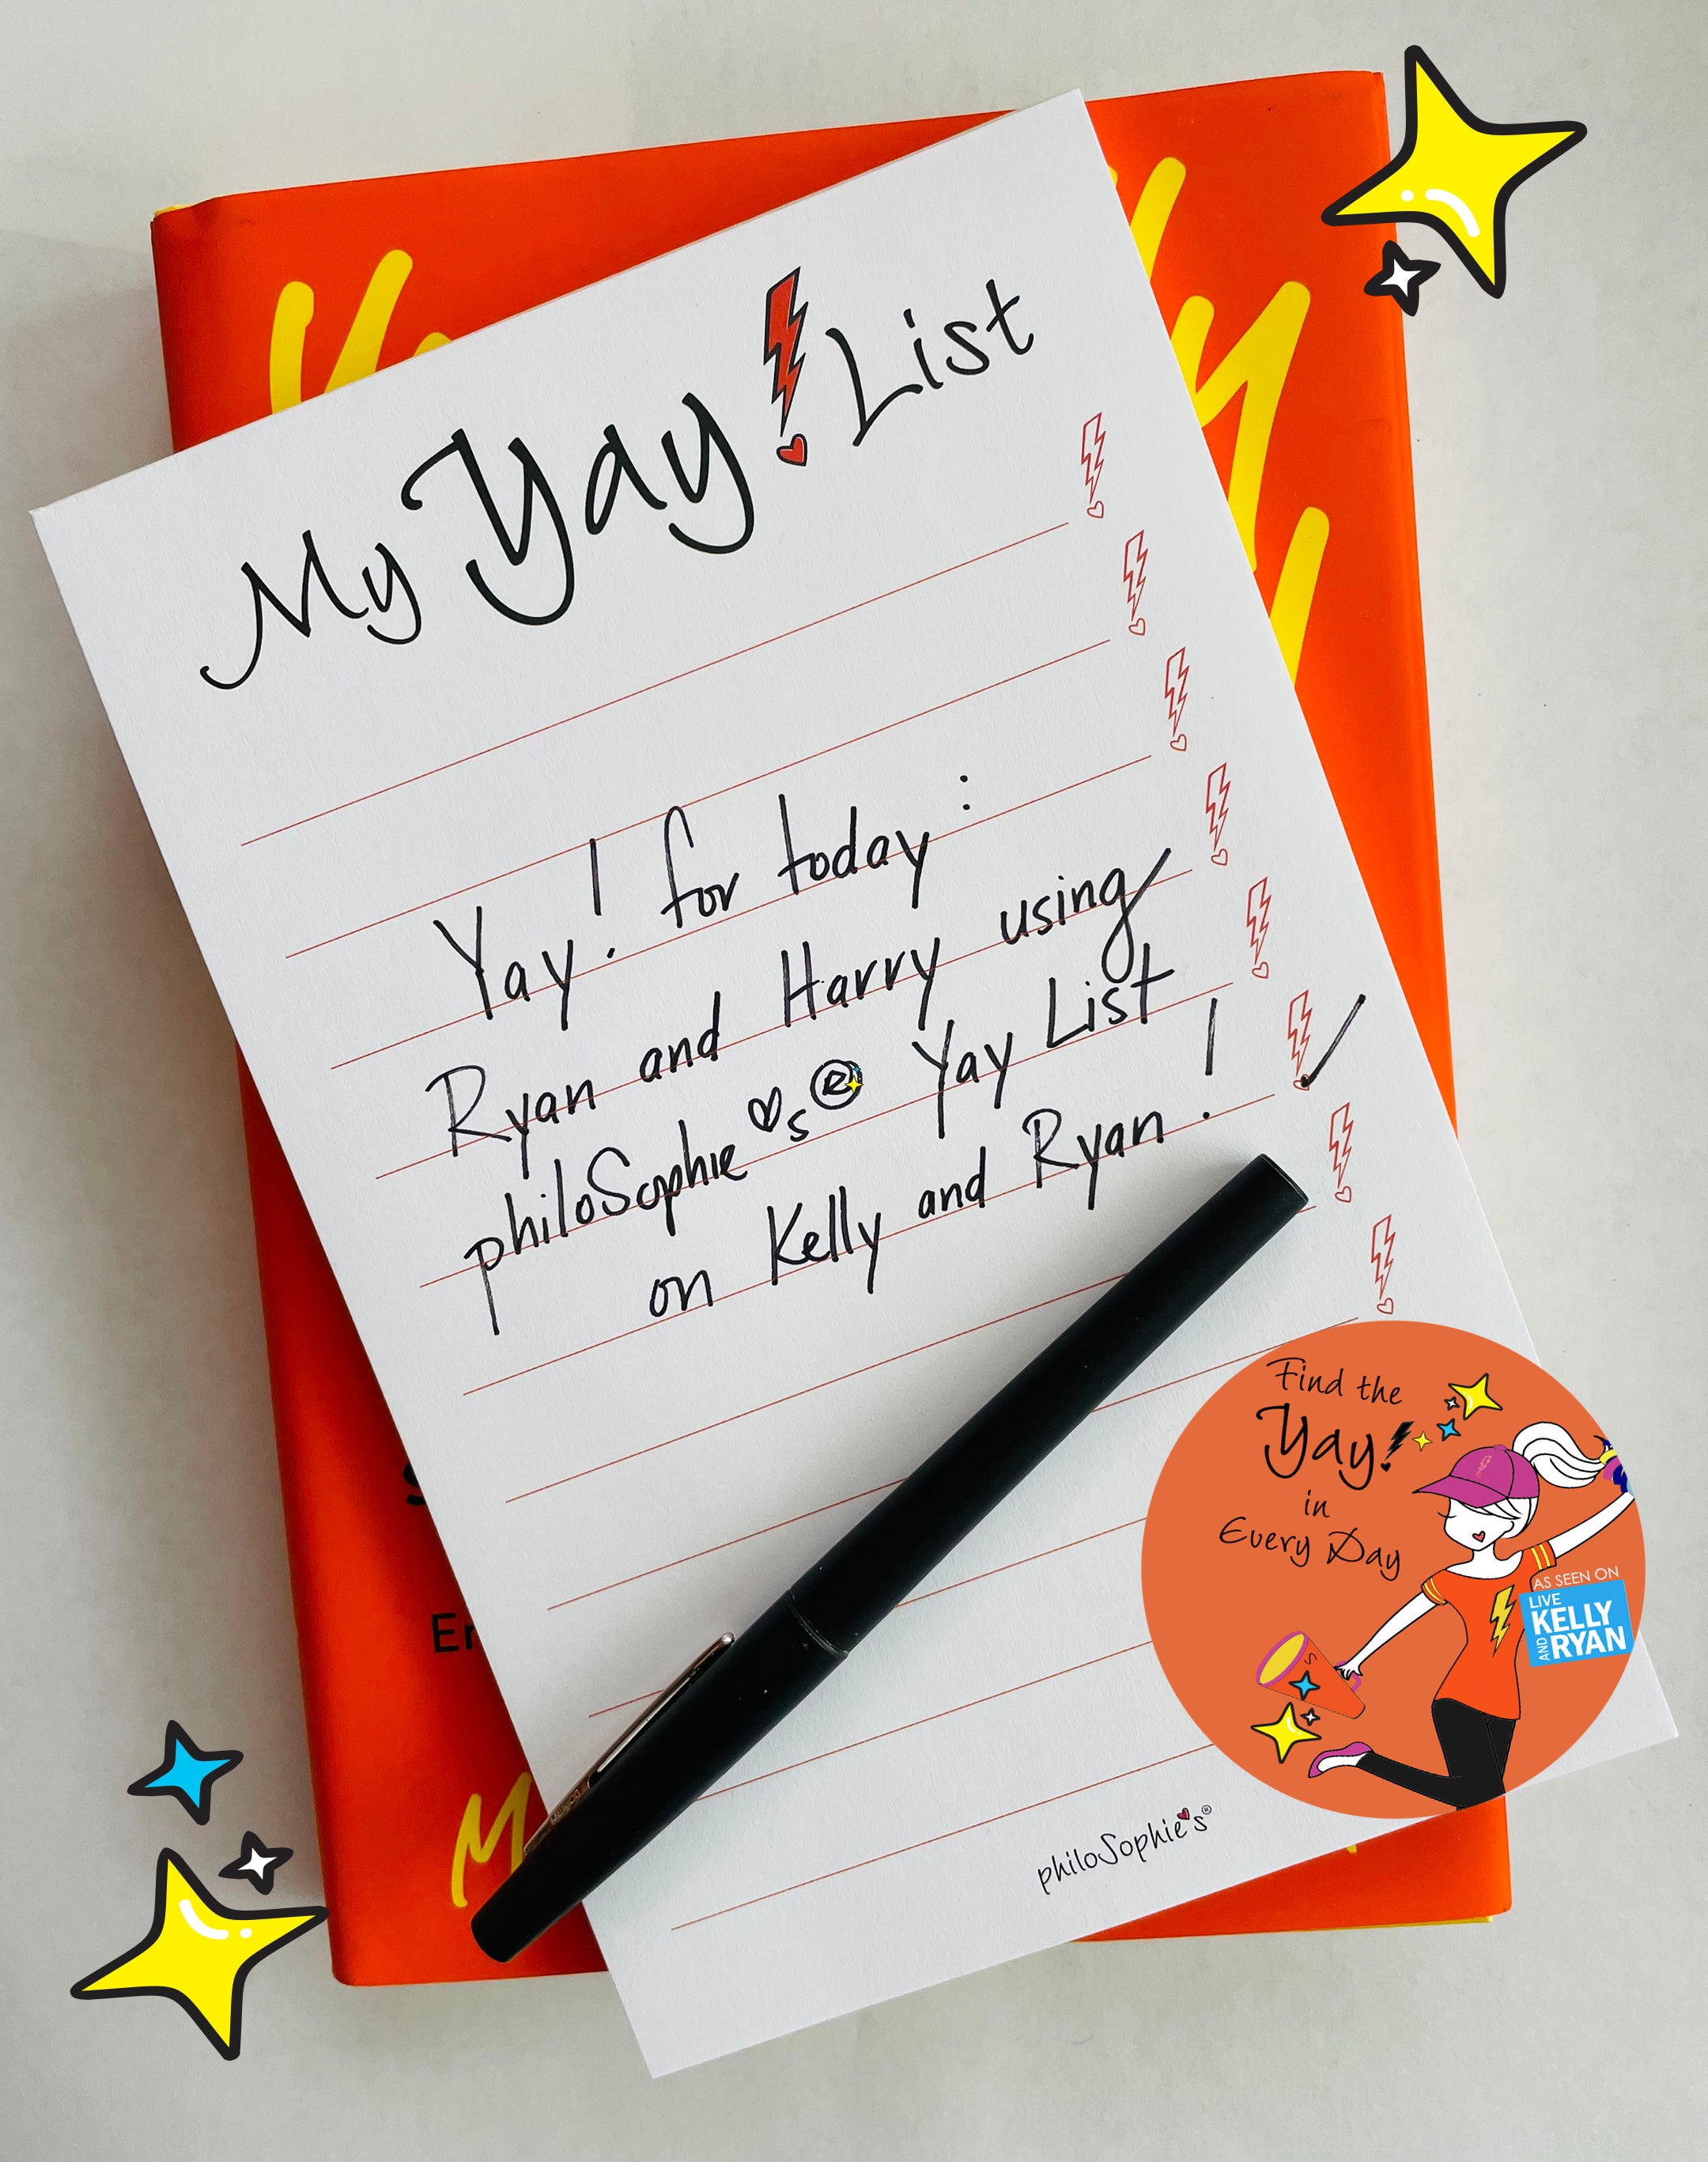 My Yay! List
Yay! for today:
Ryan and Harry using
philoSophie's® Yay List
on Kelly and Ryan!
Find the
Yay!
in
Every Day
AS SEEN ON
LIVE
KELLY
AND RYAN
philoSophie's®